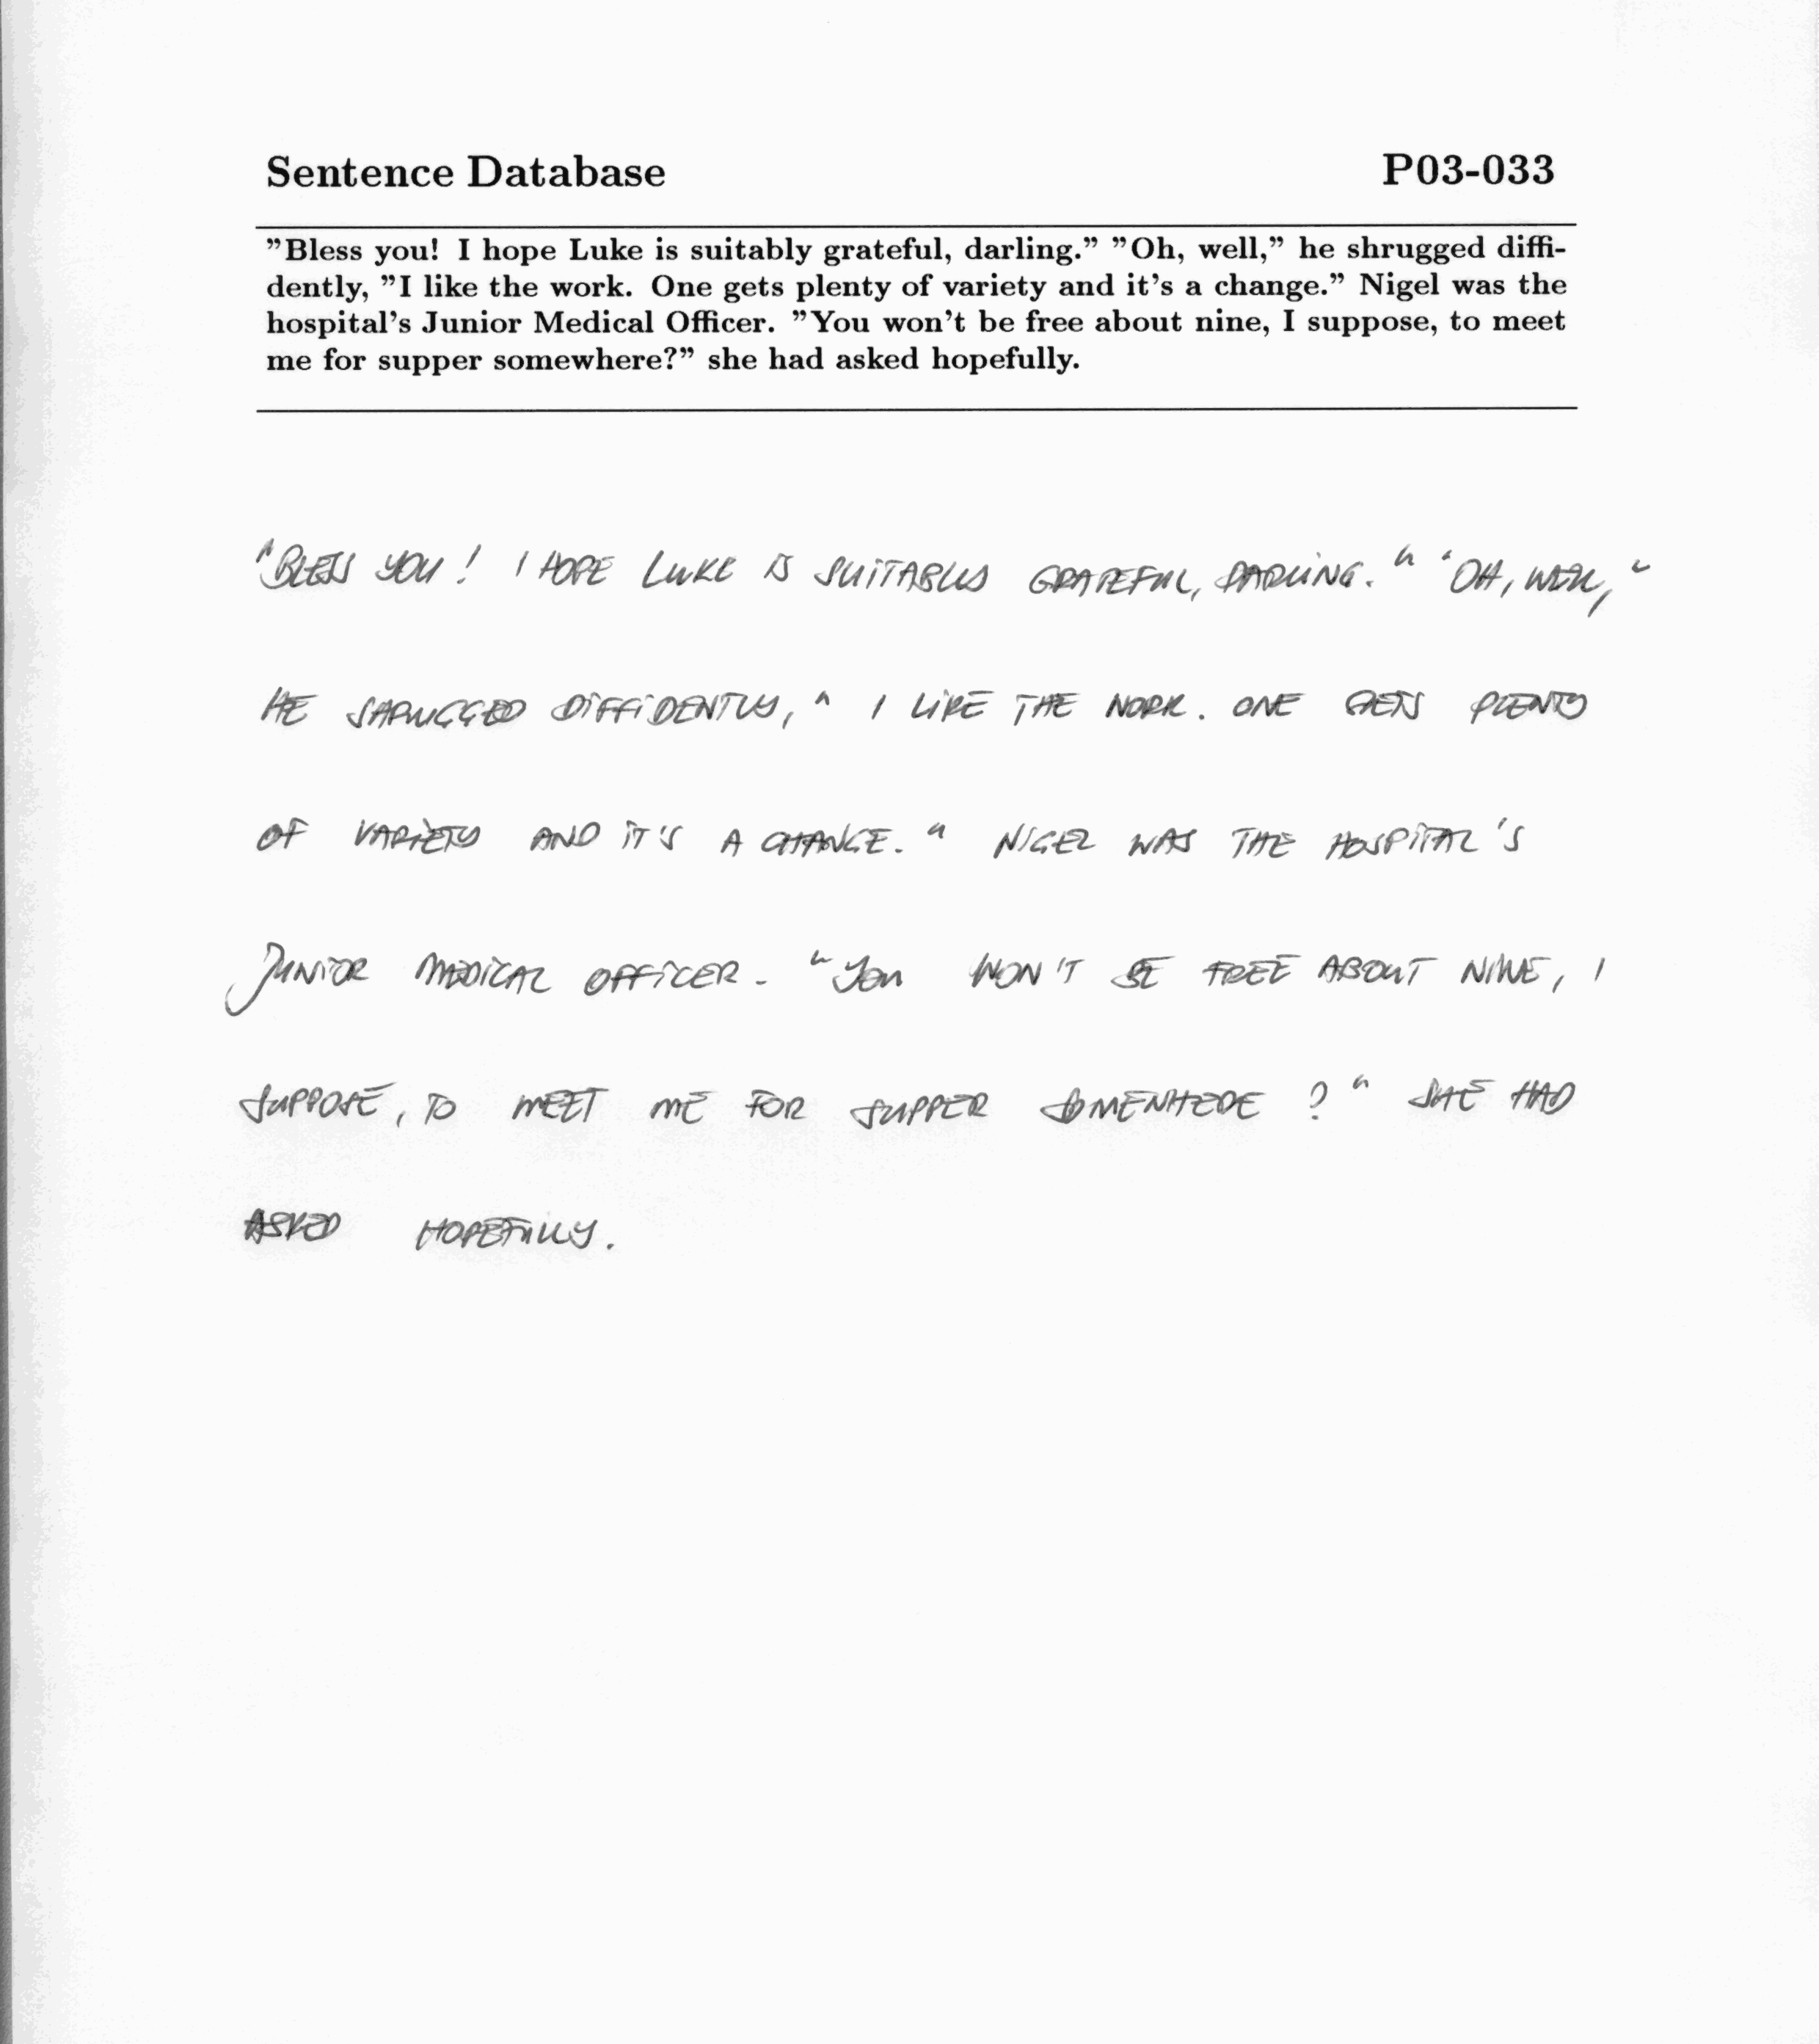 Sentence Database P03-033
"Bless you! I hope Luke is suitably grateful, darling." "Oh, well," he shrugged diffi-
dently, "I like the work. One gets plenty of variety and it's a change." Nigel was the
hospital's Junior Medical Officer. "You won't be free about nine, I suppose, to meet
me for supper somewhere?" she had asked hopefully.
"BLESS YOU! I HOPE LUKE IS SUITABLY GRATEFUL, DARLING." "OH, WELL,"
HE SHRUGGED DIFFIDENTLY, " I LIKE THE WORK. ONE GETS PLENTY
OF VARIETY AND IT'S A CHANGE." NIGEL WAS THE HOSPITAL'S
JUNIOR MEDICAL OFFICER. "YOU WON'T BE FREE ABOUT NINE, I
SUPPOSE, TO MEET ME FOR SUPPER SOMEWHERE ?" SHE HAD
ASKED HOPEFULLY.